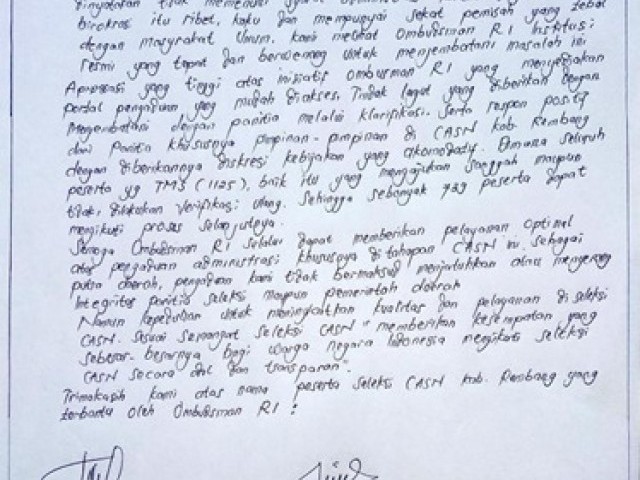 dinyatakan tidak memenuhi syarat
birokrasi itu ribet, kaku dan mempunyai sekat pemisah yang tebal
dengan masyarakat Umum. kami melihat Ombudsman RI Institusi
resmi yang tepat dan berwenang untuk menjembatani masalah ini
Apresiasi yang tinggi atas inisiatif Ombudsman RI yang menyediakan
portal pengaduan yang mudah diakses. Tindak lanjut yang diberikan dengan
mengembatani dengan panitia melalui klarifikasi. Serta respon positif
dari Panitia khususnya pimpinan-pimpinan di CASN kab. Rembang
dengan diberikannya diskresi kebijakan yang akomodatif. Dimana seluruh
peserta yg TMS (1125), baik itu yang mengajukan sanggah maupun
tidak, dilakukan verifikasi ulang. Sehingga sebanyak 739 peserta dapat
mengikuti proses selanjutnya.
Semoga Ombudsman RI selalu dapat memberikan pelayanan optimal
atas pengaduan administrasi khususnya di tahapan CASN ini. sebagai
putra daerah, pengaduan kami tidak bermaksud menjatuhkan atau menyerang
Integritas panitia seleksi maupun pemerintah daerah
Namun kepedulian untuk meningkatkan kualitas dan pelayanan di seleksi
CASN. Sesuai semangat seleksi CASN "memberikan kesempatan yang
sebesar-besarnya bagi warga negara Indonesia mengikuti seleksi
CASN secara adil dan transparan".
Trimakasih kami atas nama peserta seleksi CASN kab. Rembang yang
terbantu oleh Ombudsman RI :